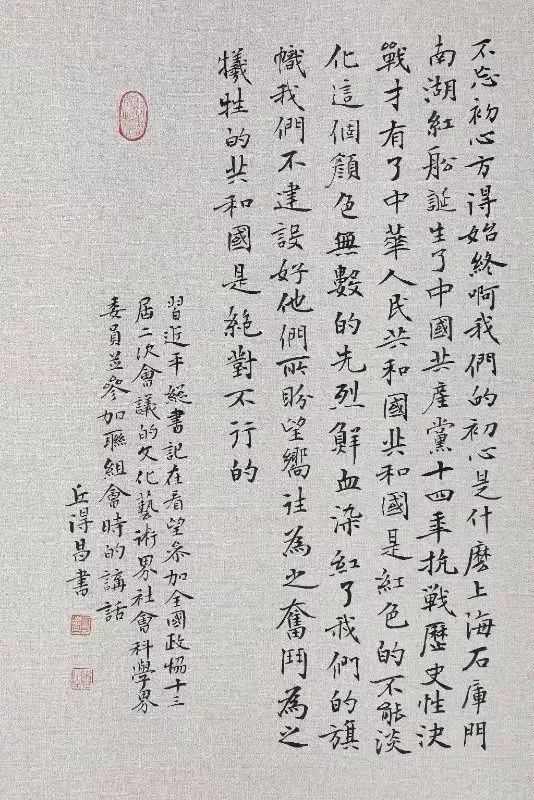 不忘初心方得始終啊我們的初心是什麽上海石庫門
南湖紅船誕生了中國共產黨十四年抗戰歷史性決
戰才有了中華人民共和國共和國是紅色的不能淡
化這個顏色無數的先烈鮮血染紅了我們的旗
幟我們不建設好他們所盼望嚮往為之奮鬥為之
犧牲的共和國是絕對不行的
習近平總書記在看望參加全國政協十三
屆二次會議的文化藝術界社會科學界
委員並參加聯組會時的講話
丘得昌書